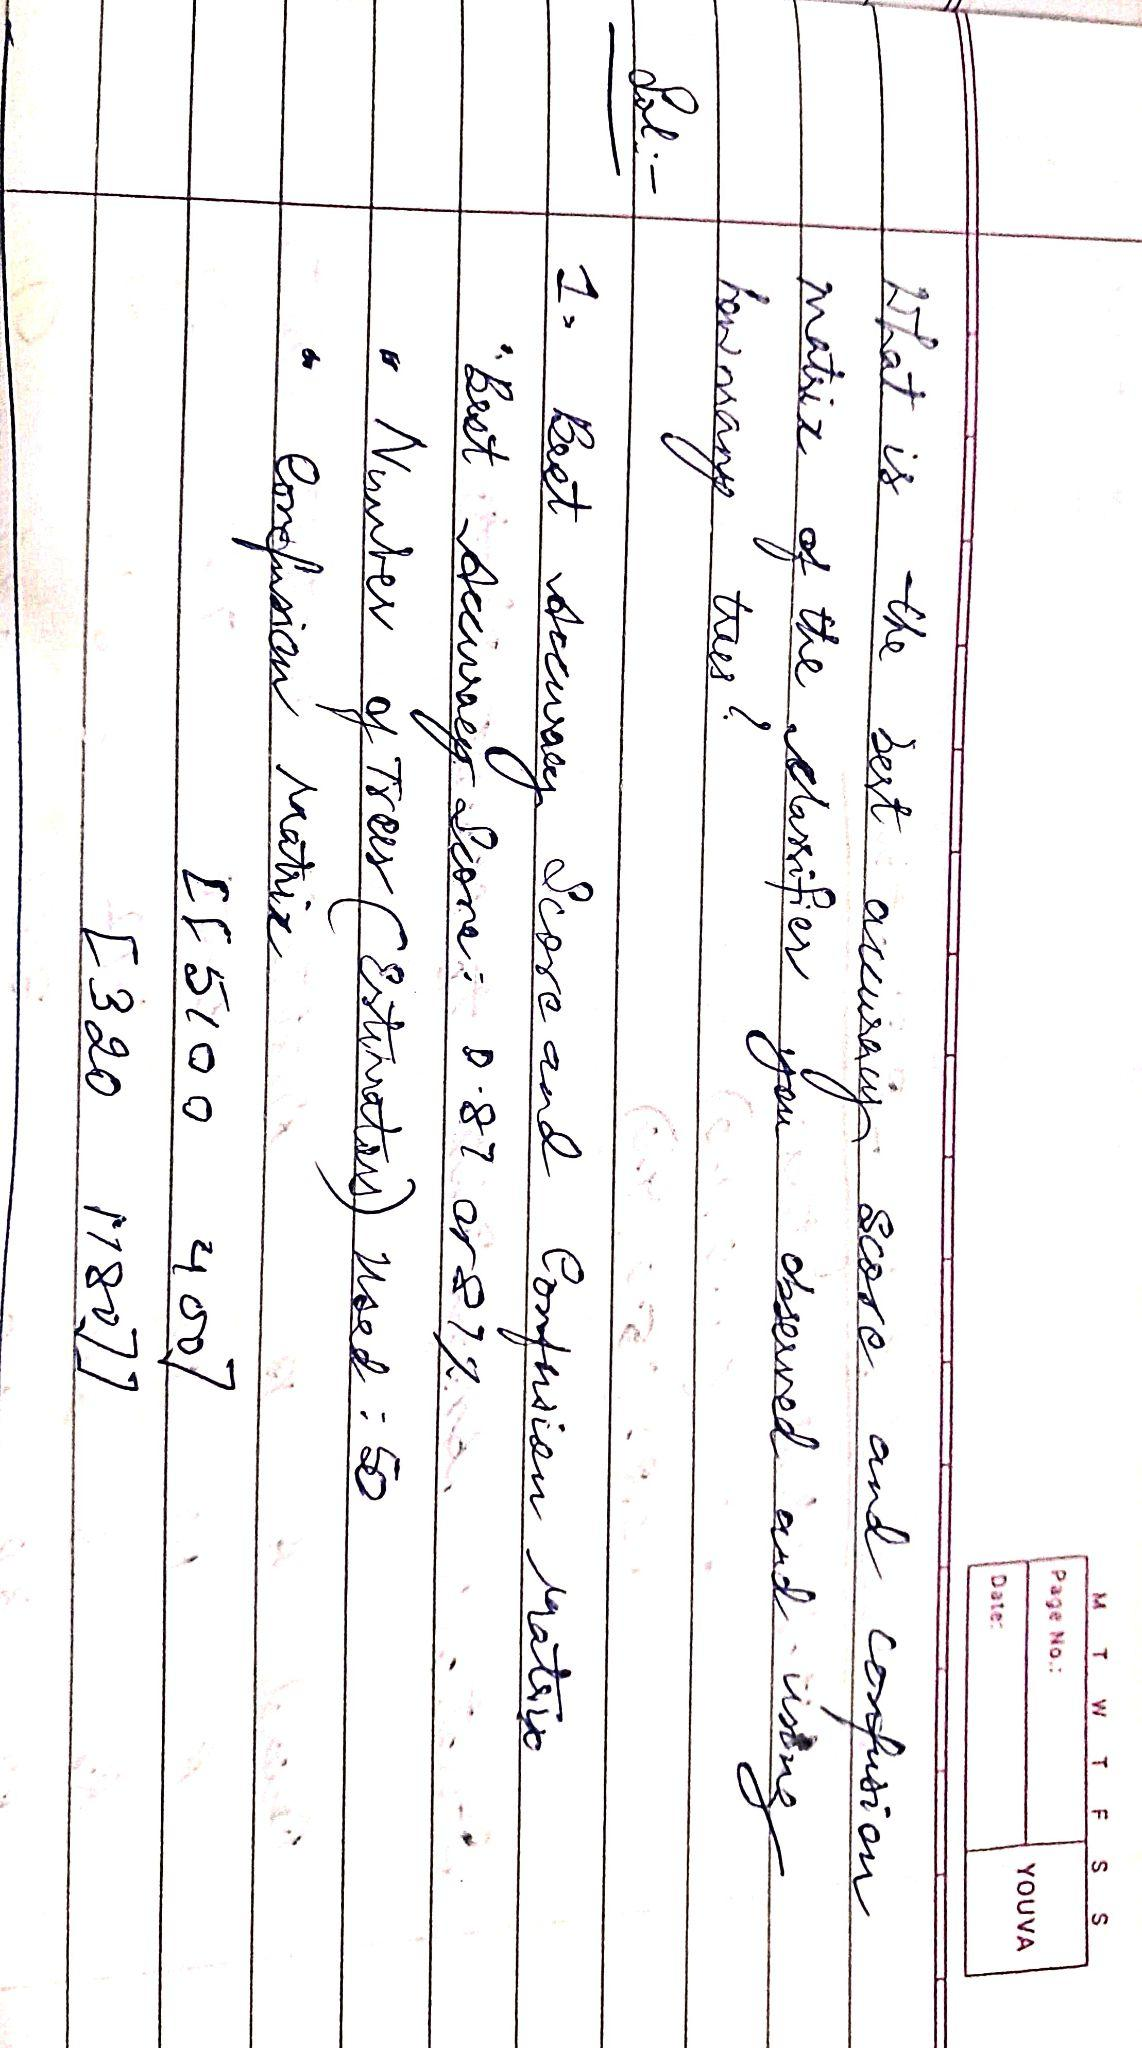 M T W T F S S
Page No.:
Date:
YOUVA
What is the best accuracy score and confusion
matrix of the classifier you observed and using
how many trees?
Sol:-
1. Best Accuracy Score and Confusion Matrix
• Best Accuracy Score: 0.87 or 87%
• Number of Trees (Estimators) Used: 50
• Confusion Matrix
[[5100 400]
[320 1180]]